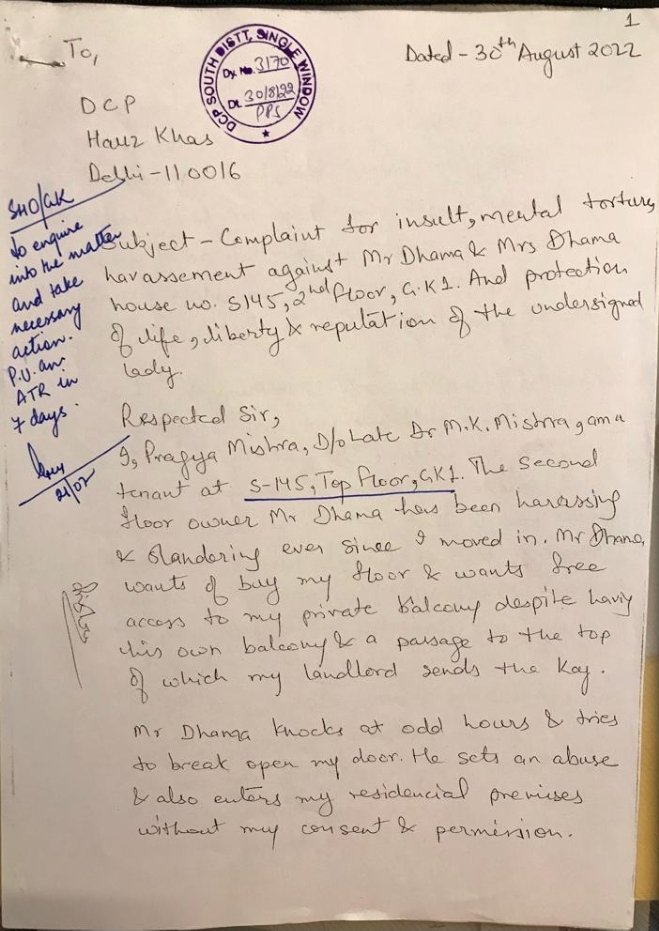 1
To,
Dated - 30th August 2022
DCP SOUTH DISTT. SINGLE WINDOW
Dy. No. 3170
Dt. 30/8/22
PPS
DCP
Hauz Khas
Delhi - 110016
SHO/GK
to enquire
into the matter
and take
necessary
action.
P.U. an
ATR in
7 days.
Subject - Complaint for insult, mental torture,
harassement against Mr Dhama & Mrs Dhama
house no. S145, 2nd floor, G.K1. And protection
of life, liberty & reputation of the undersigned
lady.
Respected Sir,
I, Pragya Mishra, D/o Late Dr M.K. Mishra, am a
tenant at S-145, Top Floor, GK1. The second
floor owner Mr Dhama has been harassing
& slandering ever since I moved in. Mr Dhama,
wants of buy my floor & wants free
access to my private balcony despite having
his own balcony & a passage to the top
of which my landlord sends the key.
Mr Dhama knocks at odd hours & tries
to break open my door. He sets an abuse
& also enters my residencial premises
without my consent & permission.